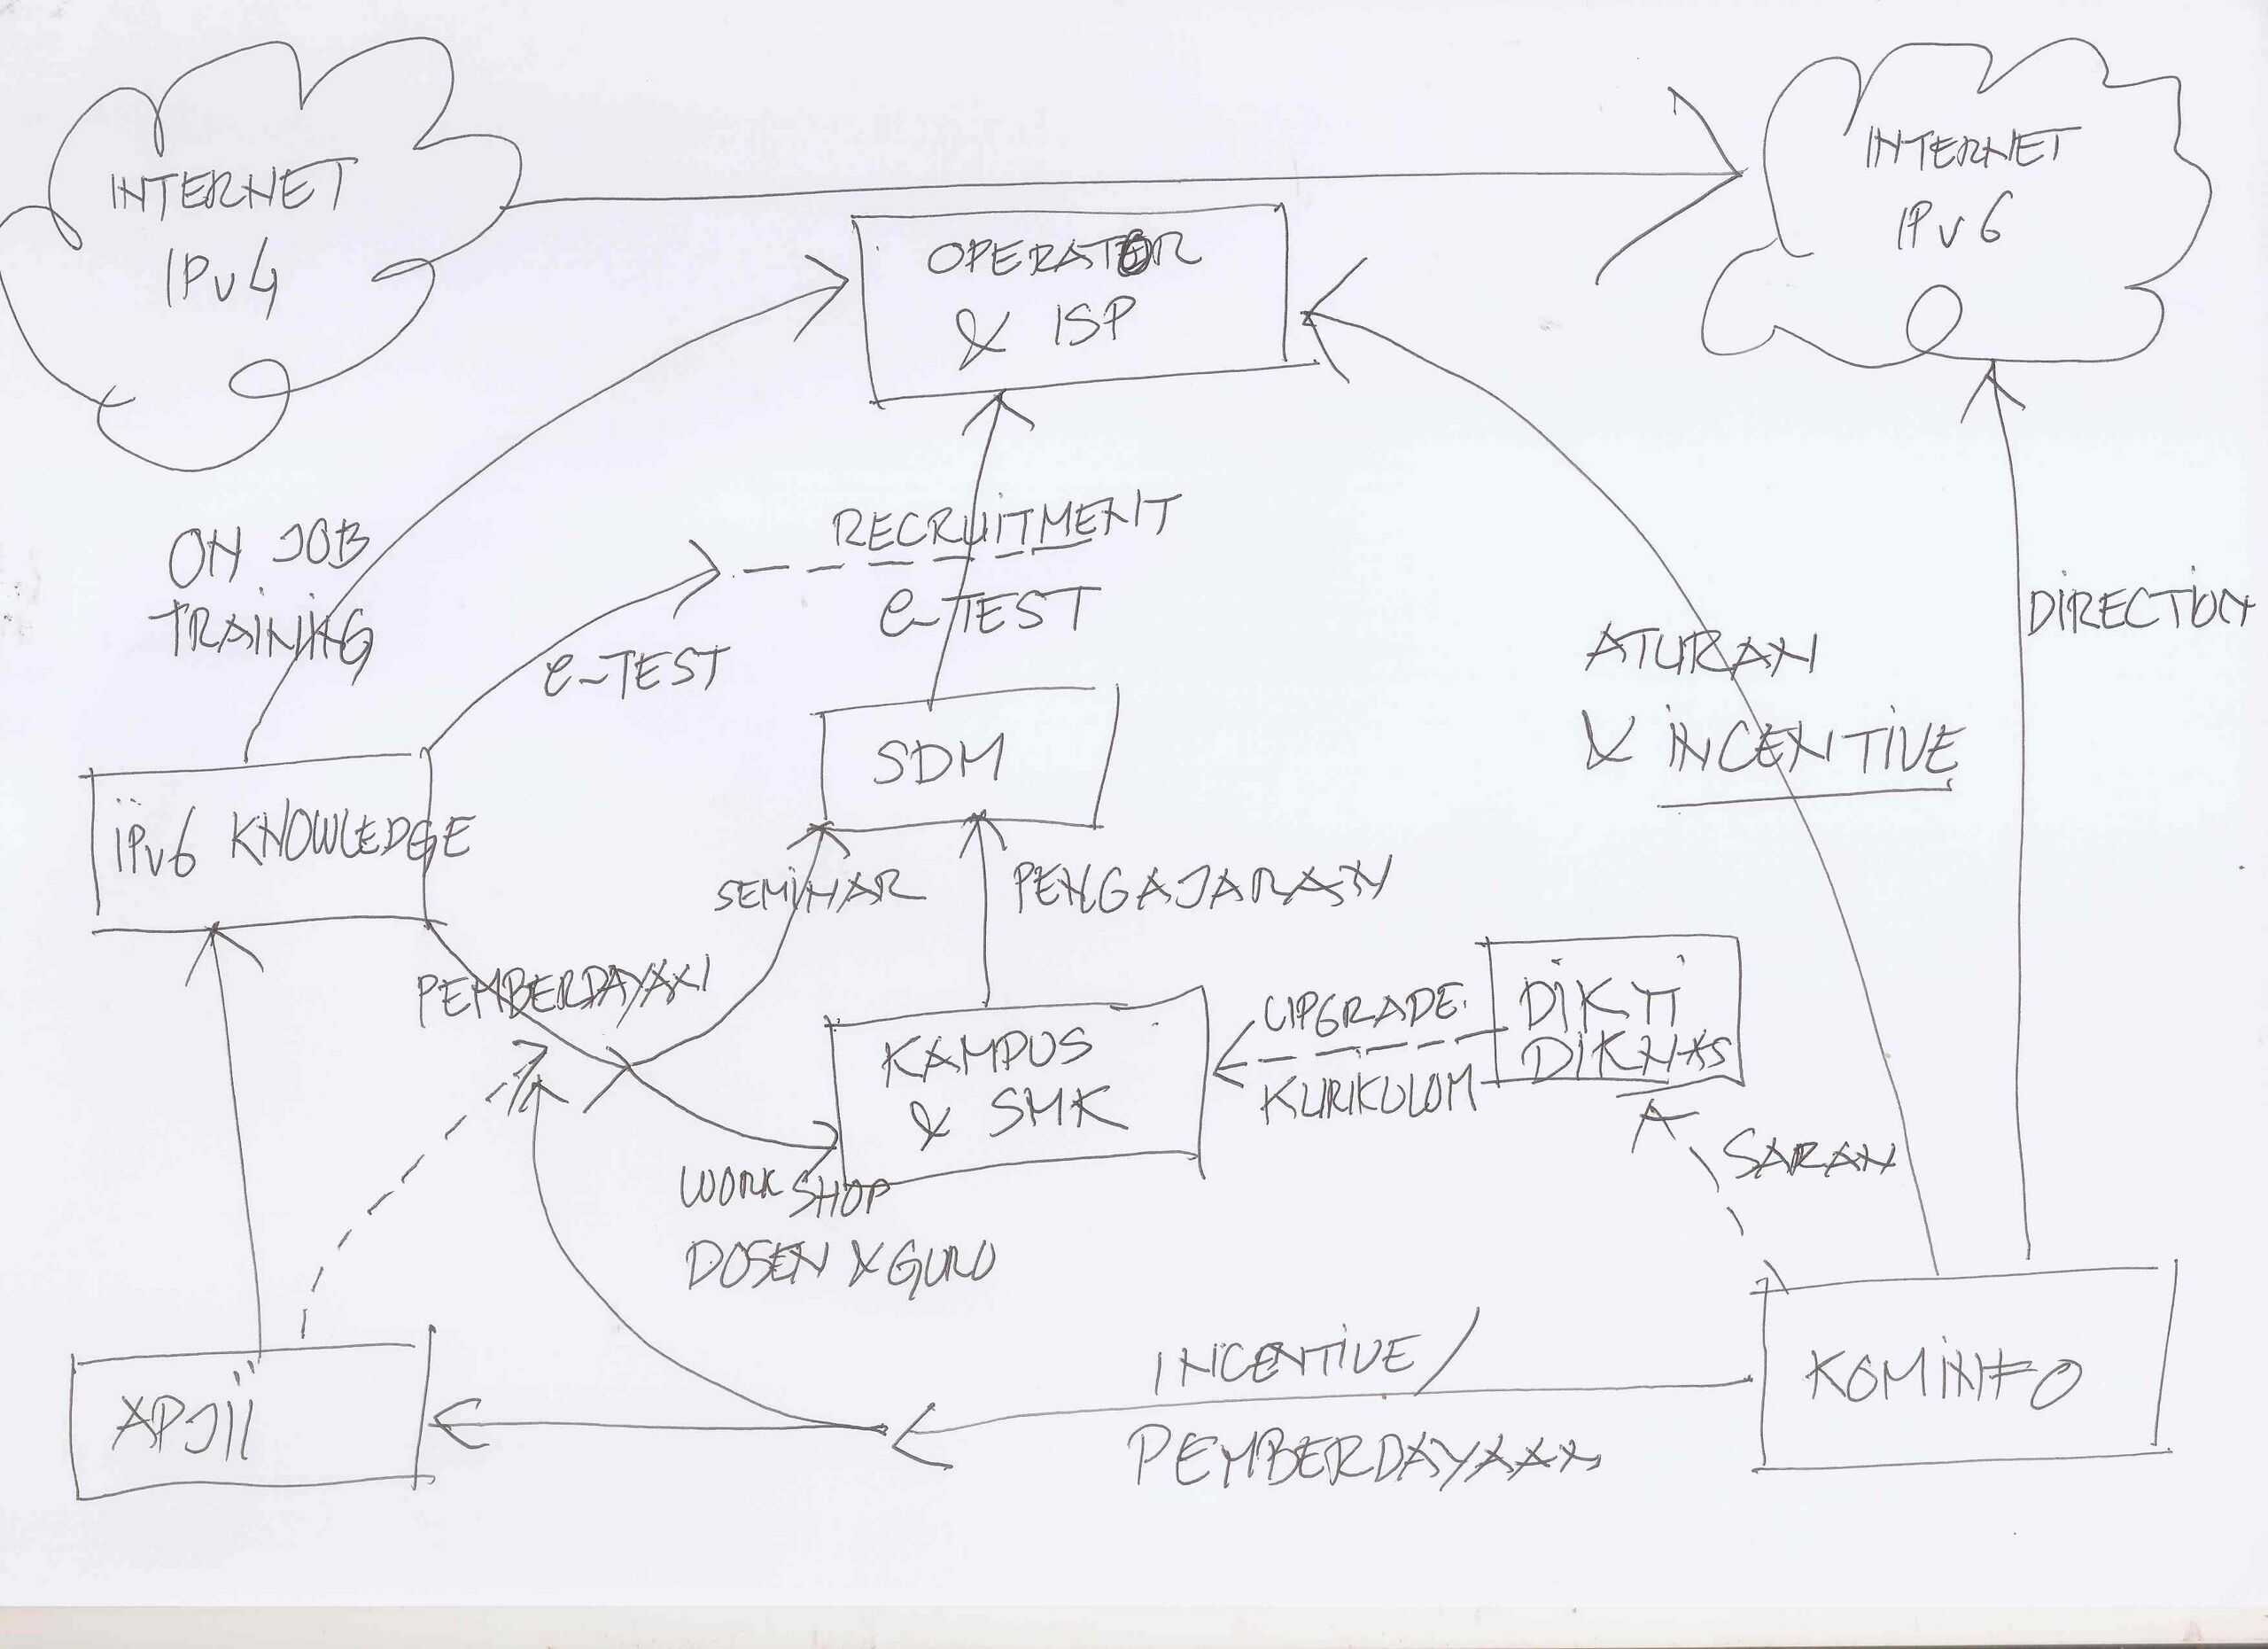 INTERNET
IPv4
INTERNET
IPv6
OPERATOR
& ISP
ON JOB
TRAINING
RECRUITMENT
e-TEST
e-TEST
DIRECTION
ATURAN
& INCENTIVE
SDM
IPv6 KNOWLEDGE
SEMINAR
PENGAJARAN
PEMBERDAYAAN
KAMPUS
& SMK
UPGRADE
KURIKULUM
DIKTI
DIKNAS
SARAN
WORKSHOP
DOSEN & GURU
APJII
INCENTIVE/
PEMBERDAYAAN
KOMINFO